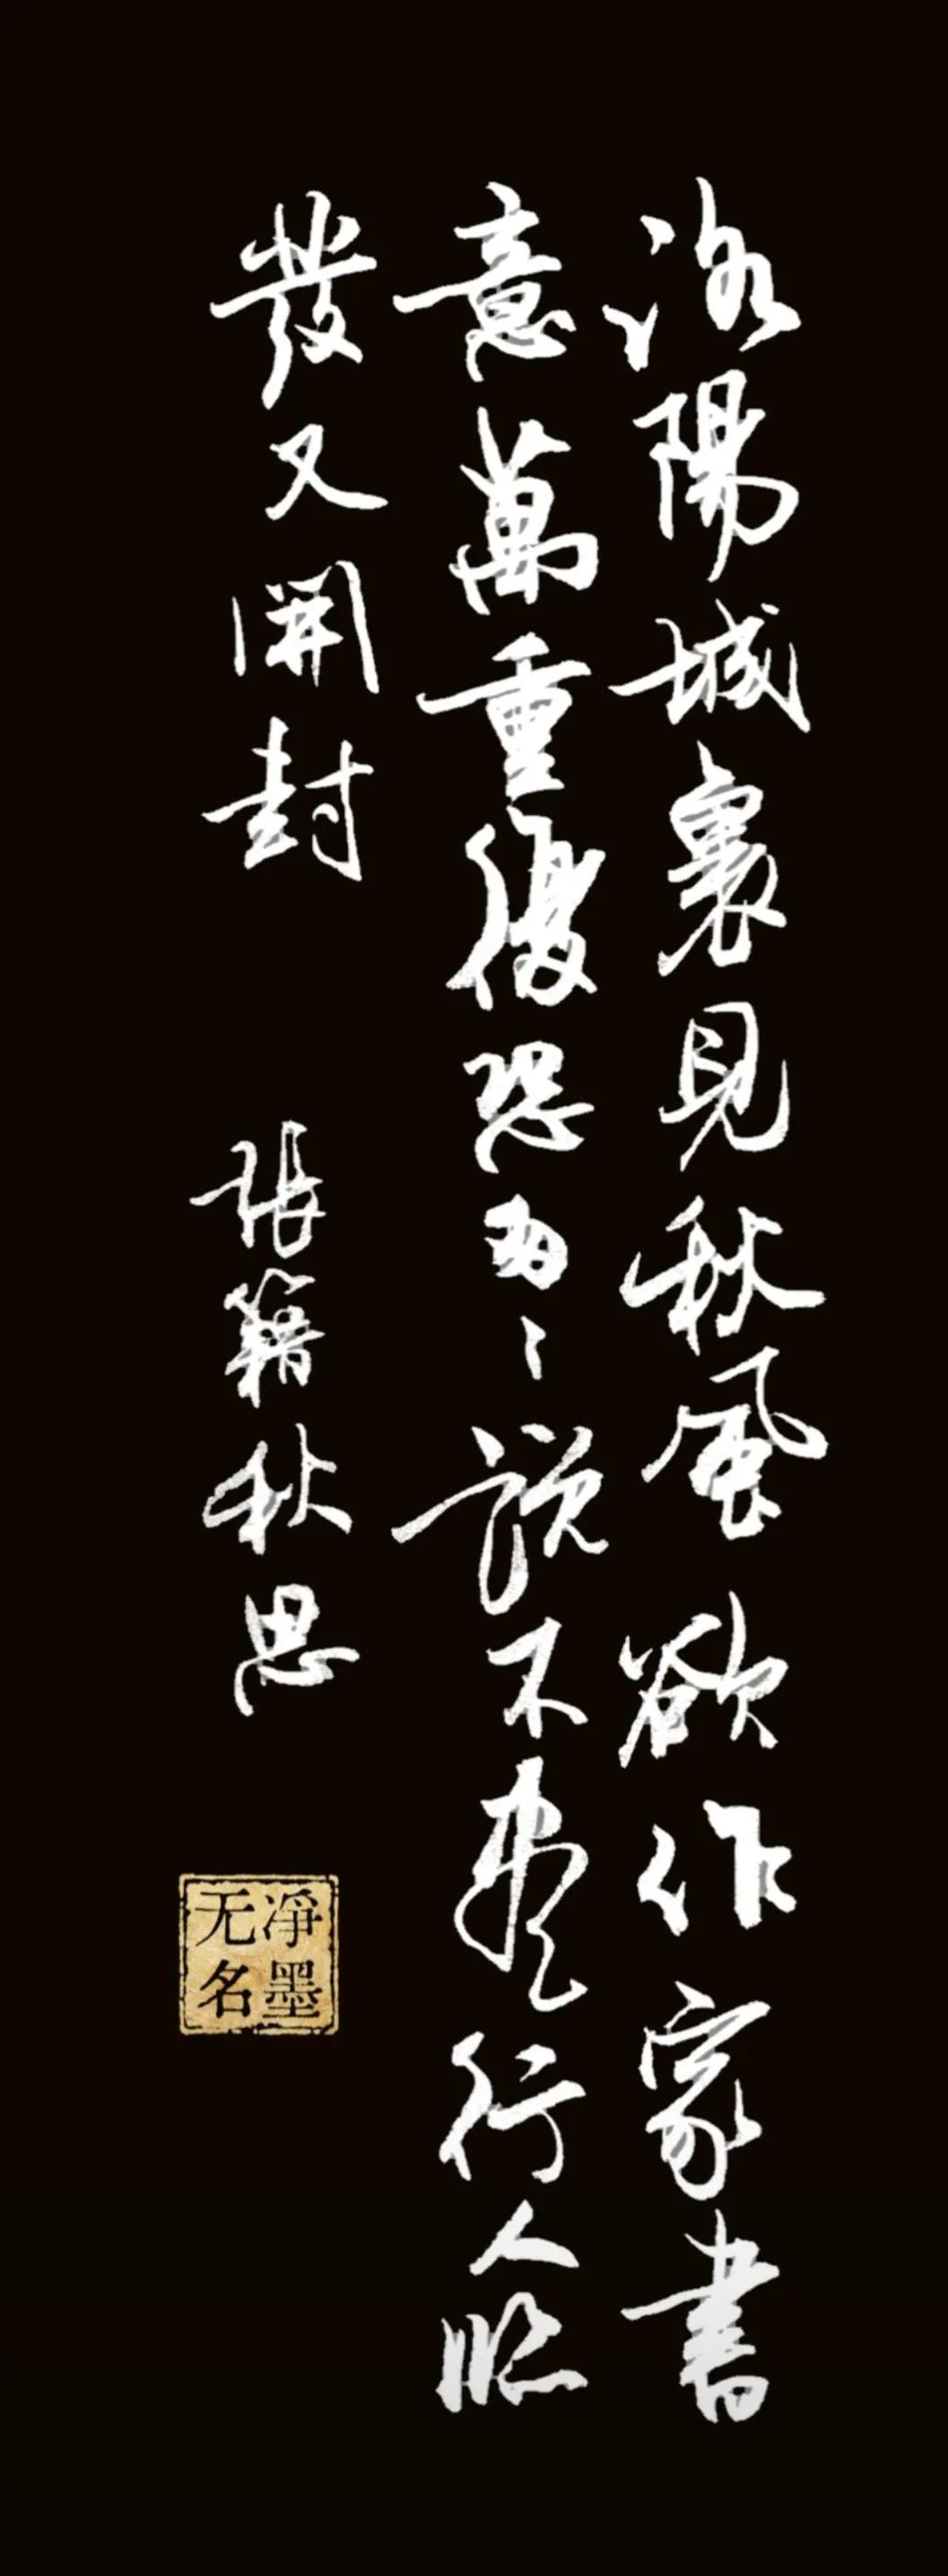 洛陽城裏見秋風欲作家書
意萬重復恐匆〻說不盡行人臨
發又開封
張籍秋思
净墨
无名